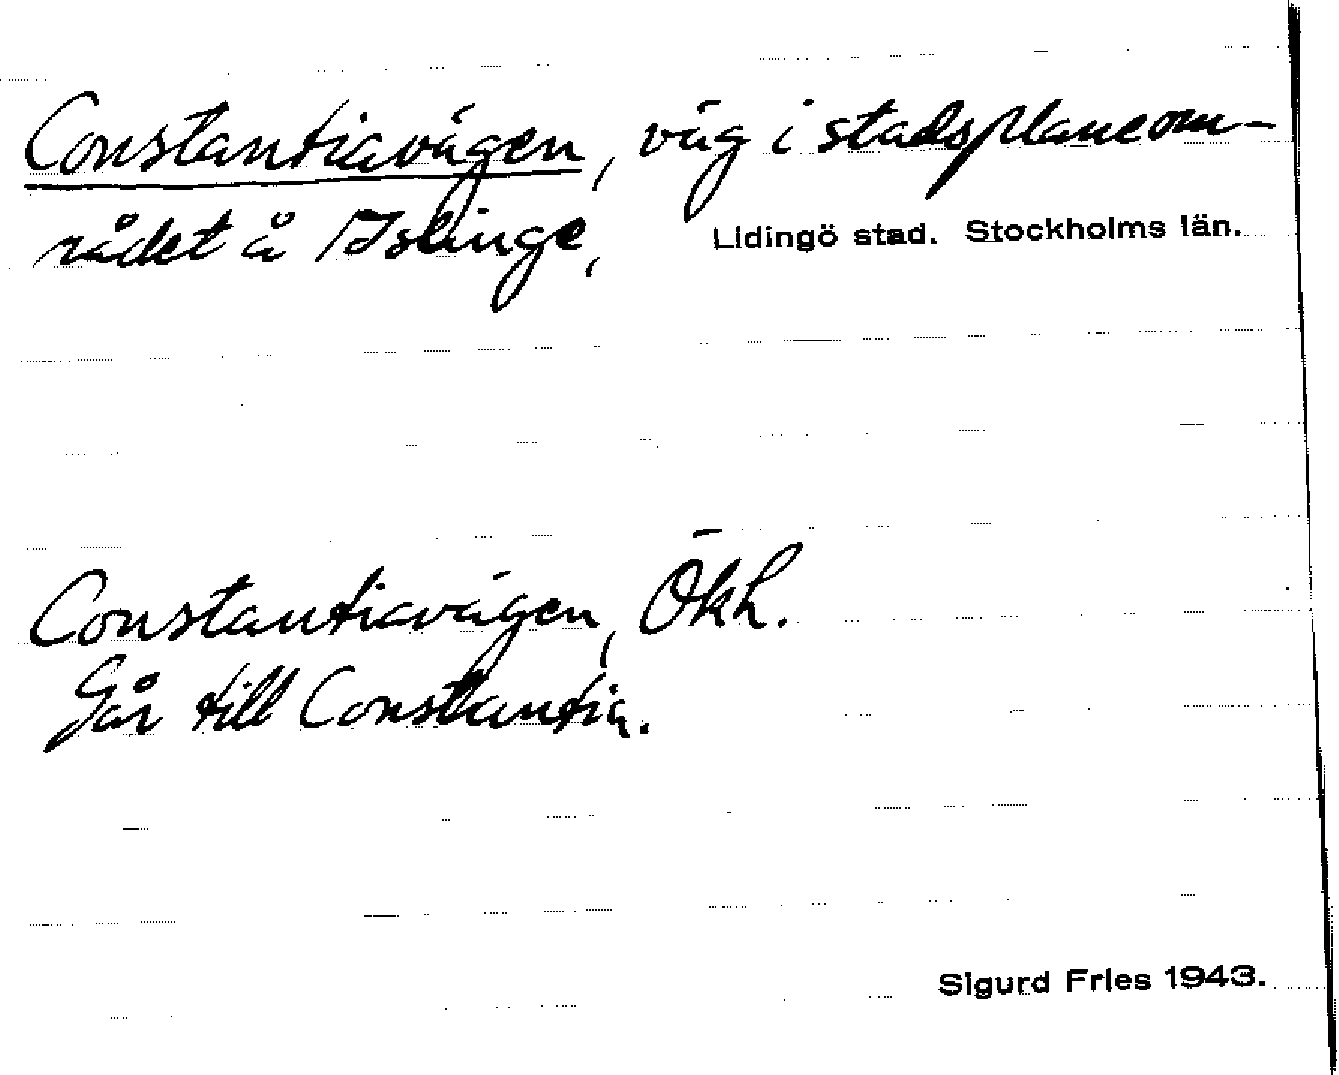 Constantiavägen, väg i stadsplaneom-
rådet å Islinge, Lidingö stad. Stockholms län.
Constantiavägen, Ökh.
Går till Constantia.
Sigurd Fries 1943.